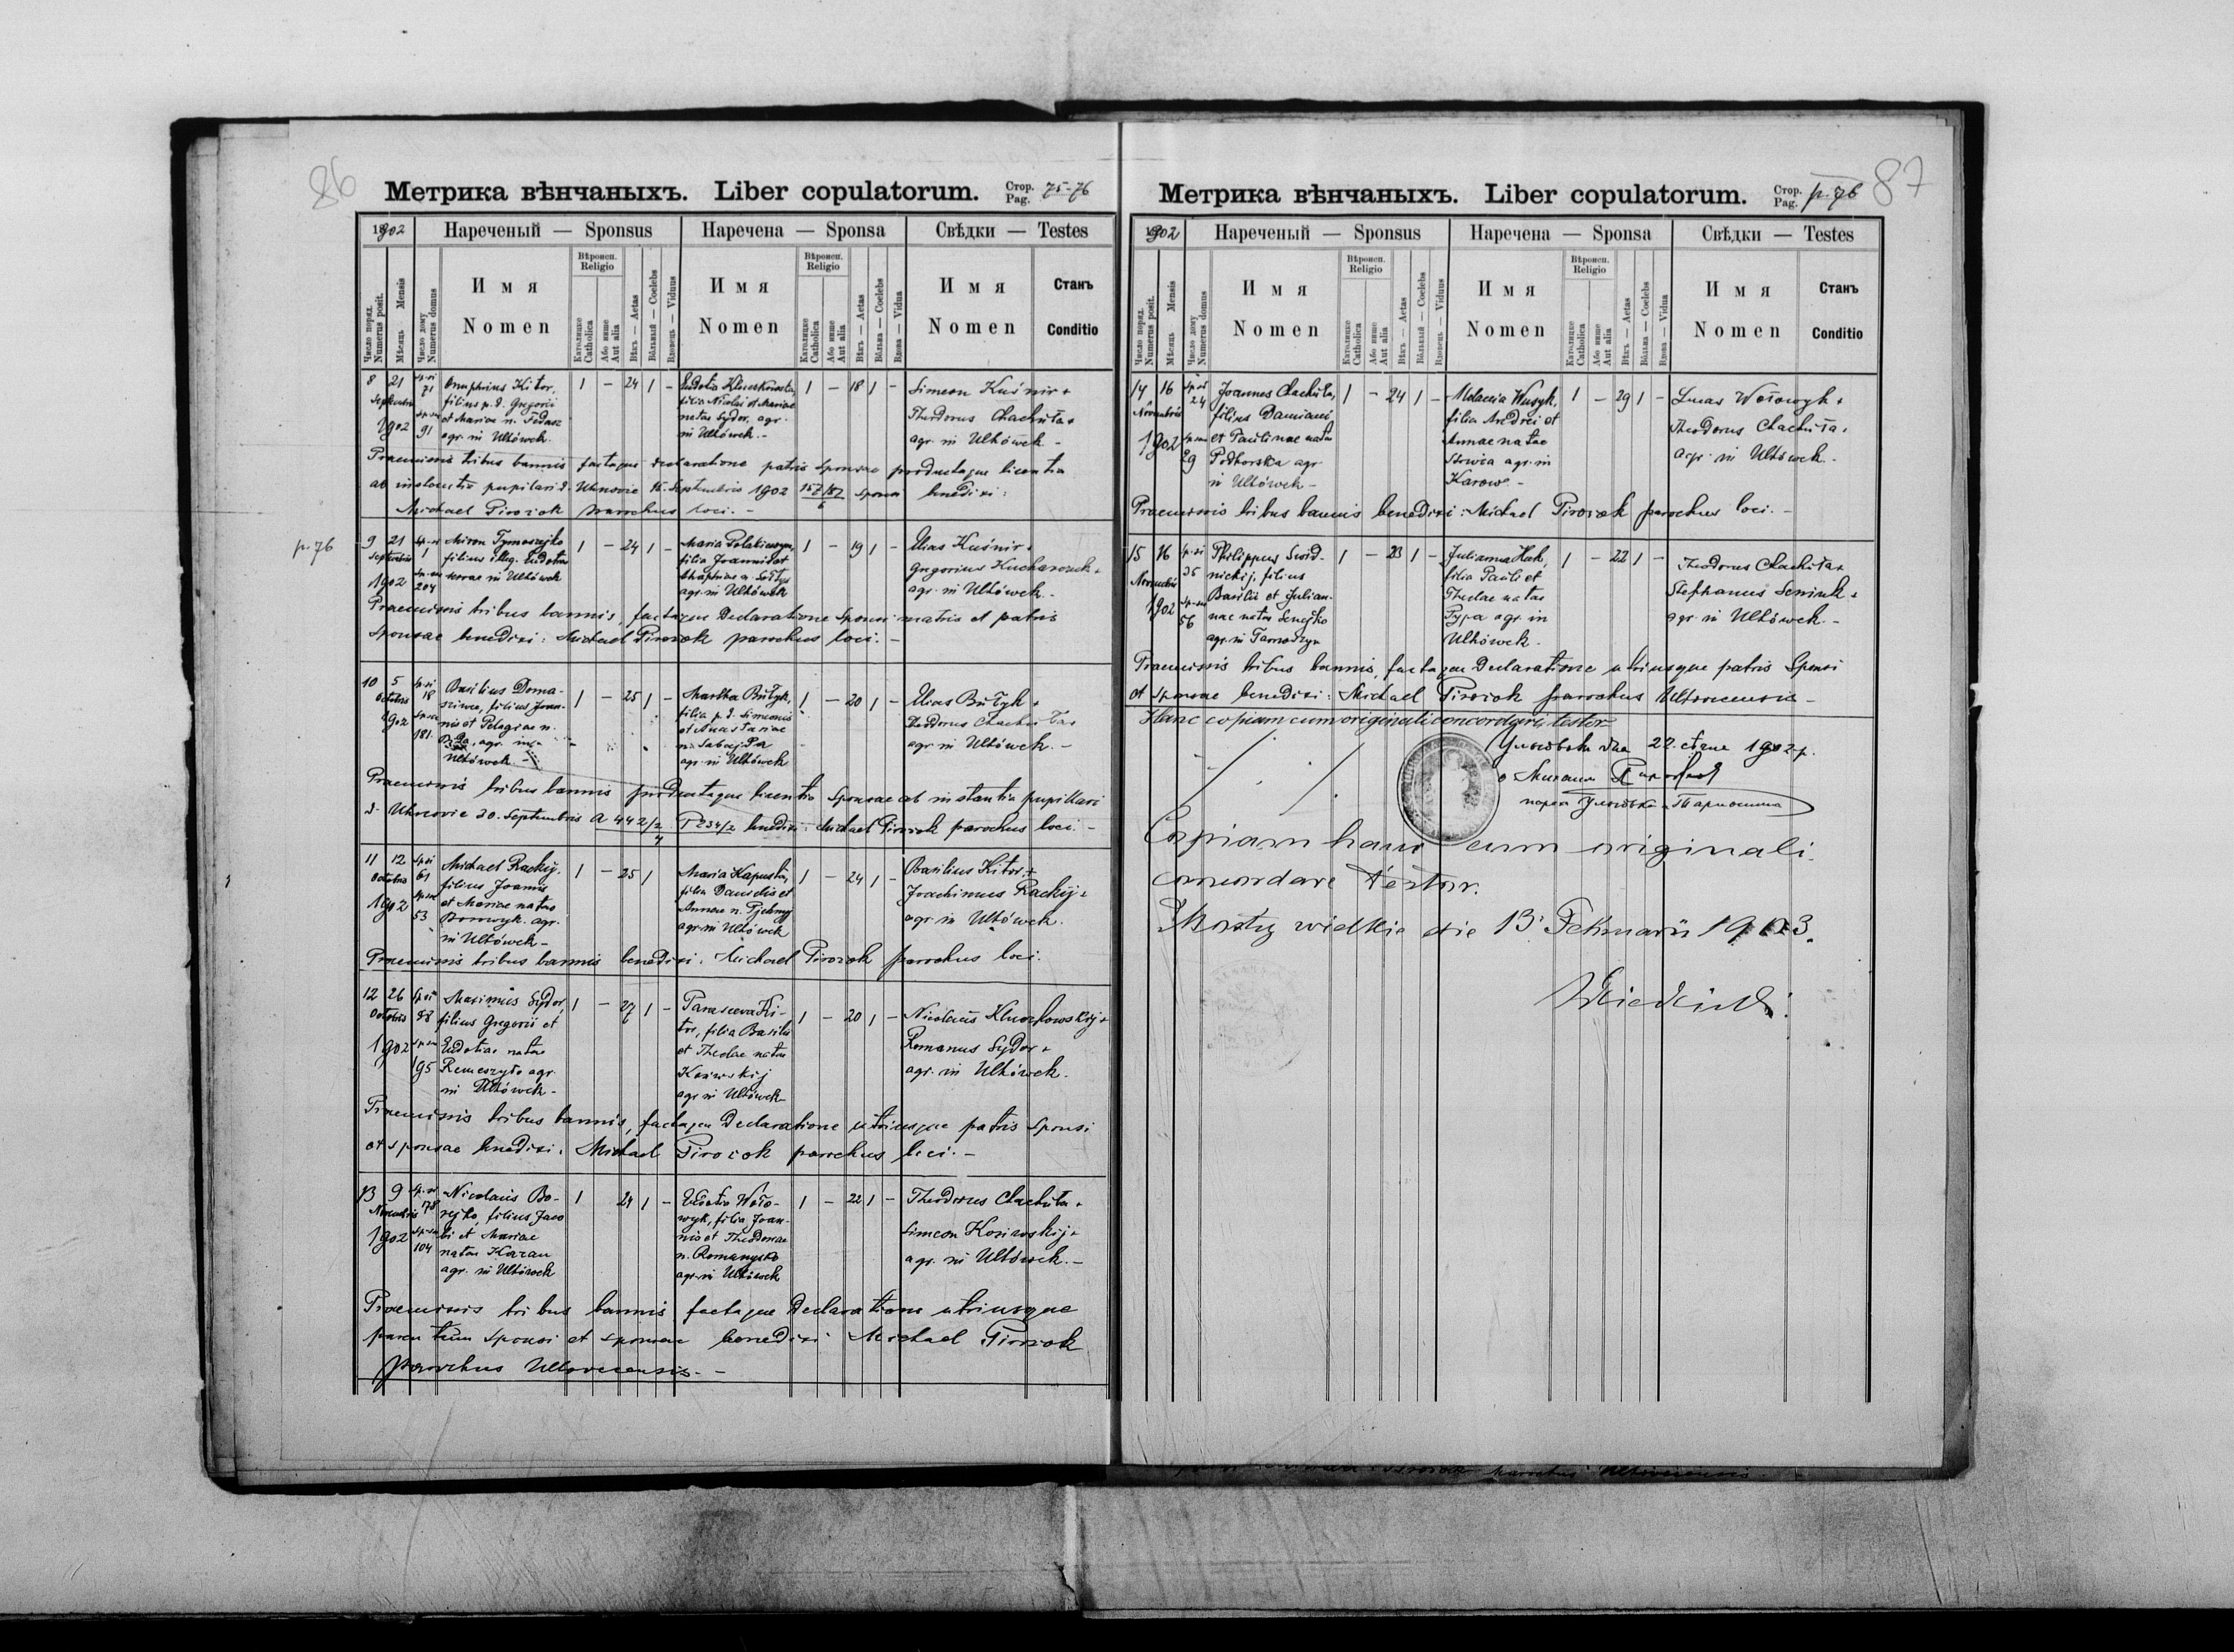 86
Метрика вѣнчаныхъ. Liber copulatorum. Стор. Pag. 75-76
1902
Нареченый — Sponsus
Наречена — Sponsa
Свѣдки — Testes
Число поряд. Numerus posit.
Мѣсяць Mensis
Число дому Numerus domus
Имя
Nomen
Вѣроисп. Religio
Католицке Catholica
Або инше Aut alia
Вѣкъ — Aetas
Вôльный — Coelebs
Вдовець — Viduus
Имя
Nomen
Вѣроисп. Religio
Католицке Catholica
Або инше Aut alia
Вѣкъ — Aetas
Вôльна — Coelebs
Вдова — Vidua
Имя
Nomen
Станъ
Conditio
8 21 Septembris 1902
71
91
Onuphrius Kitor,
filius p. d. Gregorii
et Mariae n. Fedasz
agr. in Uhłówek.
1 — 24 1 —
filia Nicolai et Mariae
natae Sydor, agr.
in Uhłówek.-
1 — 18 1 —
Simeon Kuśnir +
Theodorus Chachuła +
agr. in Uhłówek.-
Praemissis tribus bannis factaque declaratione patris sponsae productaque licentia
ab instantia pupilari d. Uhnovie 15. Septembris 1902 benedixi:
Michael Pirożok parochus loci.-
p. 76
9 21 Septembris 1902
1
204
Miron Tymoszejko
filius illeg. Eudotiae
servae in Uhłówek
1 — 24 1 —
Maria
filia Joannis et
agr. in Uhłówek
1 — 19 1 —
Elias Kuśnir +
Gregorius Kucharczuk +
agr. in Uhłówek.-
Praemissis tribus bannis, factaque Declaratione sponsi matris et patris
sponsae benedixi: Michael Pirożok parochus loci.-
10 5 Octobris 1902
18
181
Basilius Doma-
filius Joan-
nis et Pelagiae n.
agr. in
Uhłówek -
1 — 25 1 —
Martha Bułyk,
filia p. d. Simeonis
et Anastasiae
agr. in Uhłówek
1 — 20 1 —
Elias Bułyk +
Theodorus Chachuła +
agr. in Uhłówek.-
Praemissis tribus bannis productaque licentia sponsae ab instantia pupillari
d. Uhnovie 30. Septembris A 442/2 P 234/2 benedixi: Michael Pirożok parochus loci.-
11 12 Octobris 1902
61
53
Michael Rackij,
filius Joannis
et Mariae natae
agr.
in Uhłówek -
1 — 25 1
Maria Kapusta,
filia Danielis et
Annae n.
agr. in Uhłówek
1 — 24 1 —
Basilius Kitor +
Joachimus Rackij +
agr. in Uhłówek.
Praemissis tribus bannis benedixi: Michael Pirożok parochus loci.
12 26 Octobris 1902
195
Maximus Sydor,
filius Gregorii et
Eudotiae natae
Remeszyło agr.
in Uhłówek -
1 — 1 —
Parasceva Ki-
tor, filia Basilii
et Theclae natae
Kosiwskij
agr. in Uhłówek
1 — 20 1 —
Nicolaus Kluczkowskij +
Romanus Sydor +
agr. in Uhłówek.
Praemissis tribus bannis, factaque Declaratione utriusque patris sponsi
et sponsae benedixi: Michael Pirożok parochus loci.-
13 9 Novembris 1902
78
104
Nicolaus Bo-
rejko, filius Jaco
bi et Mariae
natae Kazan
agr. in Uhłówek
1 24 1 —
Eudotia Woło-
wyk, filia Joan-
nis et Theodorae
n. Romanysko
agr. in Uhłówek
1 — 22 1 —
Theodorus Chachuła +
Simeon Kosiwskij +
agr. in Uhłówek.-
Praemissis tribus bannis factaque Declaratione utriusque
parentum sponsi et sponsae benedixi Michael Pirożok
parochus Uhłovecensis.-
87
Метрика вѣнчаныхъ. Liber copulatorum. Стор. Pag. p. 76
1902
Нареченый — Sponsus
Наречена — Sponsa
Свѣдки — Testes
Число поряд. Numerus posit.
Мѣсяць Mensis
Число дому Numerus domus
Имя
Nomen
Вѣроисп. Religio
Католицке Catholica
Або инше Aut alia
Вѣкъ — Aetas
Вôльный — Coelebs
Вдовець — Viduus
Имя
Nomen
Вѣроисп. Religio
Католицке Catholica
Або инше Aut alia
Вѣкъ — Aetas
Вôльна — Coelebs
Вдова — Vidua
Имя
Nomen
Станъ
Conditio
14 16 Novembris 1902
24
29
Joannes Chachuła,
filius Damiani
et Paulinae natae
Podhorska agr.
in Uhłówek -
1 — 24 1 —
Melania Wusyk,
filia Andrei et
Annae natae
agr. in
Karow.-
1 — 29 1 —
Lucas Wołowyk +
Theodorus Chachuła +
agr. in Uhłówek.-
Praemissis tribus bannis benedixi: Michael Pirożok parochus loci.-
15 16 Novembris 1902
35
56
Philippus Swid-
nickij, filius
Basilii et Julian-
nae natae Senejko
agr. in Tarnoszyn
1 — 23 1 —
Julianna Huk,
filia Pauli et
Theclae natae
Pypa agr. in
Uhłówek.
1 — 22 1 —
Theodorus Chachuła +
Stephanus Seniuk +
agr. in Uhłówek.-
Praemissis tribus bannis, factaque Declaratione utriusque patris Sponsi
et sponsae benedixi: Michael Pirożok parochus Uhłovecensis -
Hanc copiam cum originali concordare testor
22. 1902 р.
Copiam hanc cum originali
concordare testor.
Mosty wielkie die 13 Februarii 1903.